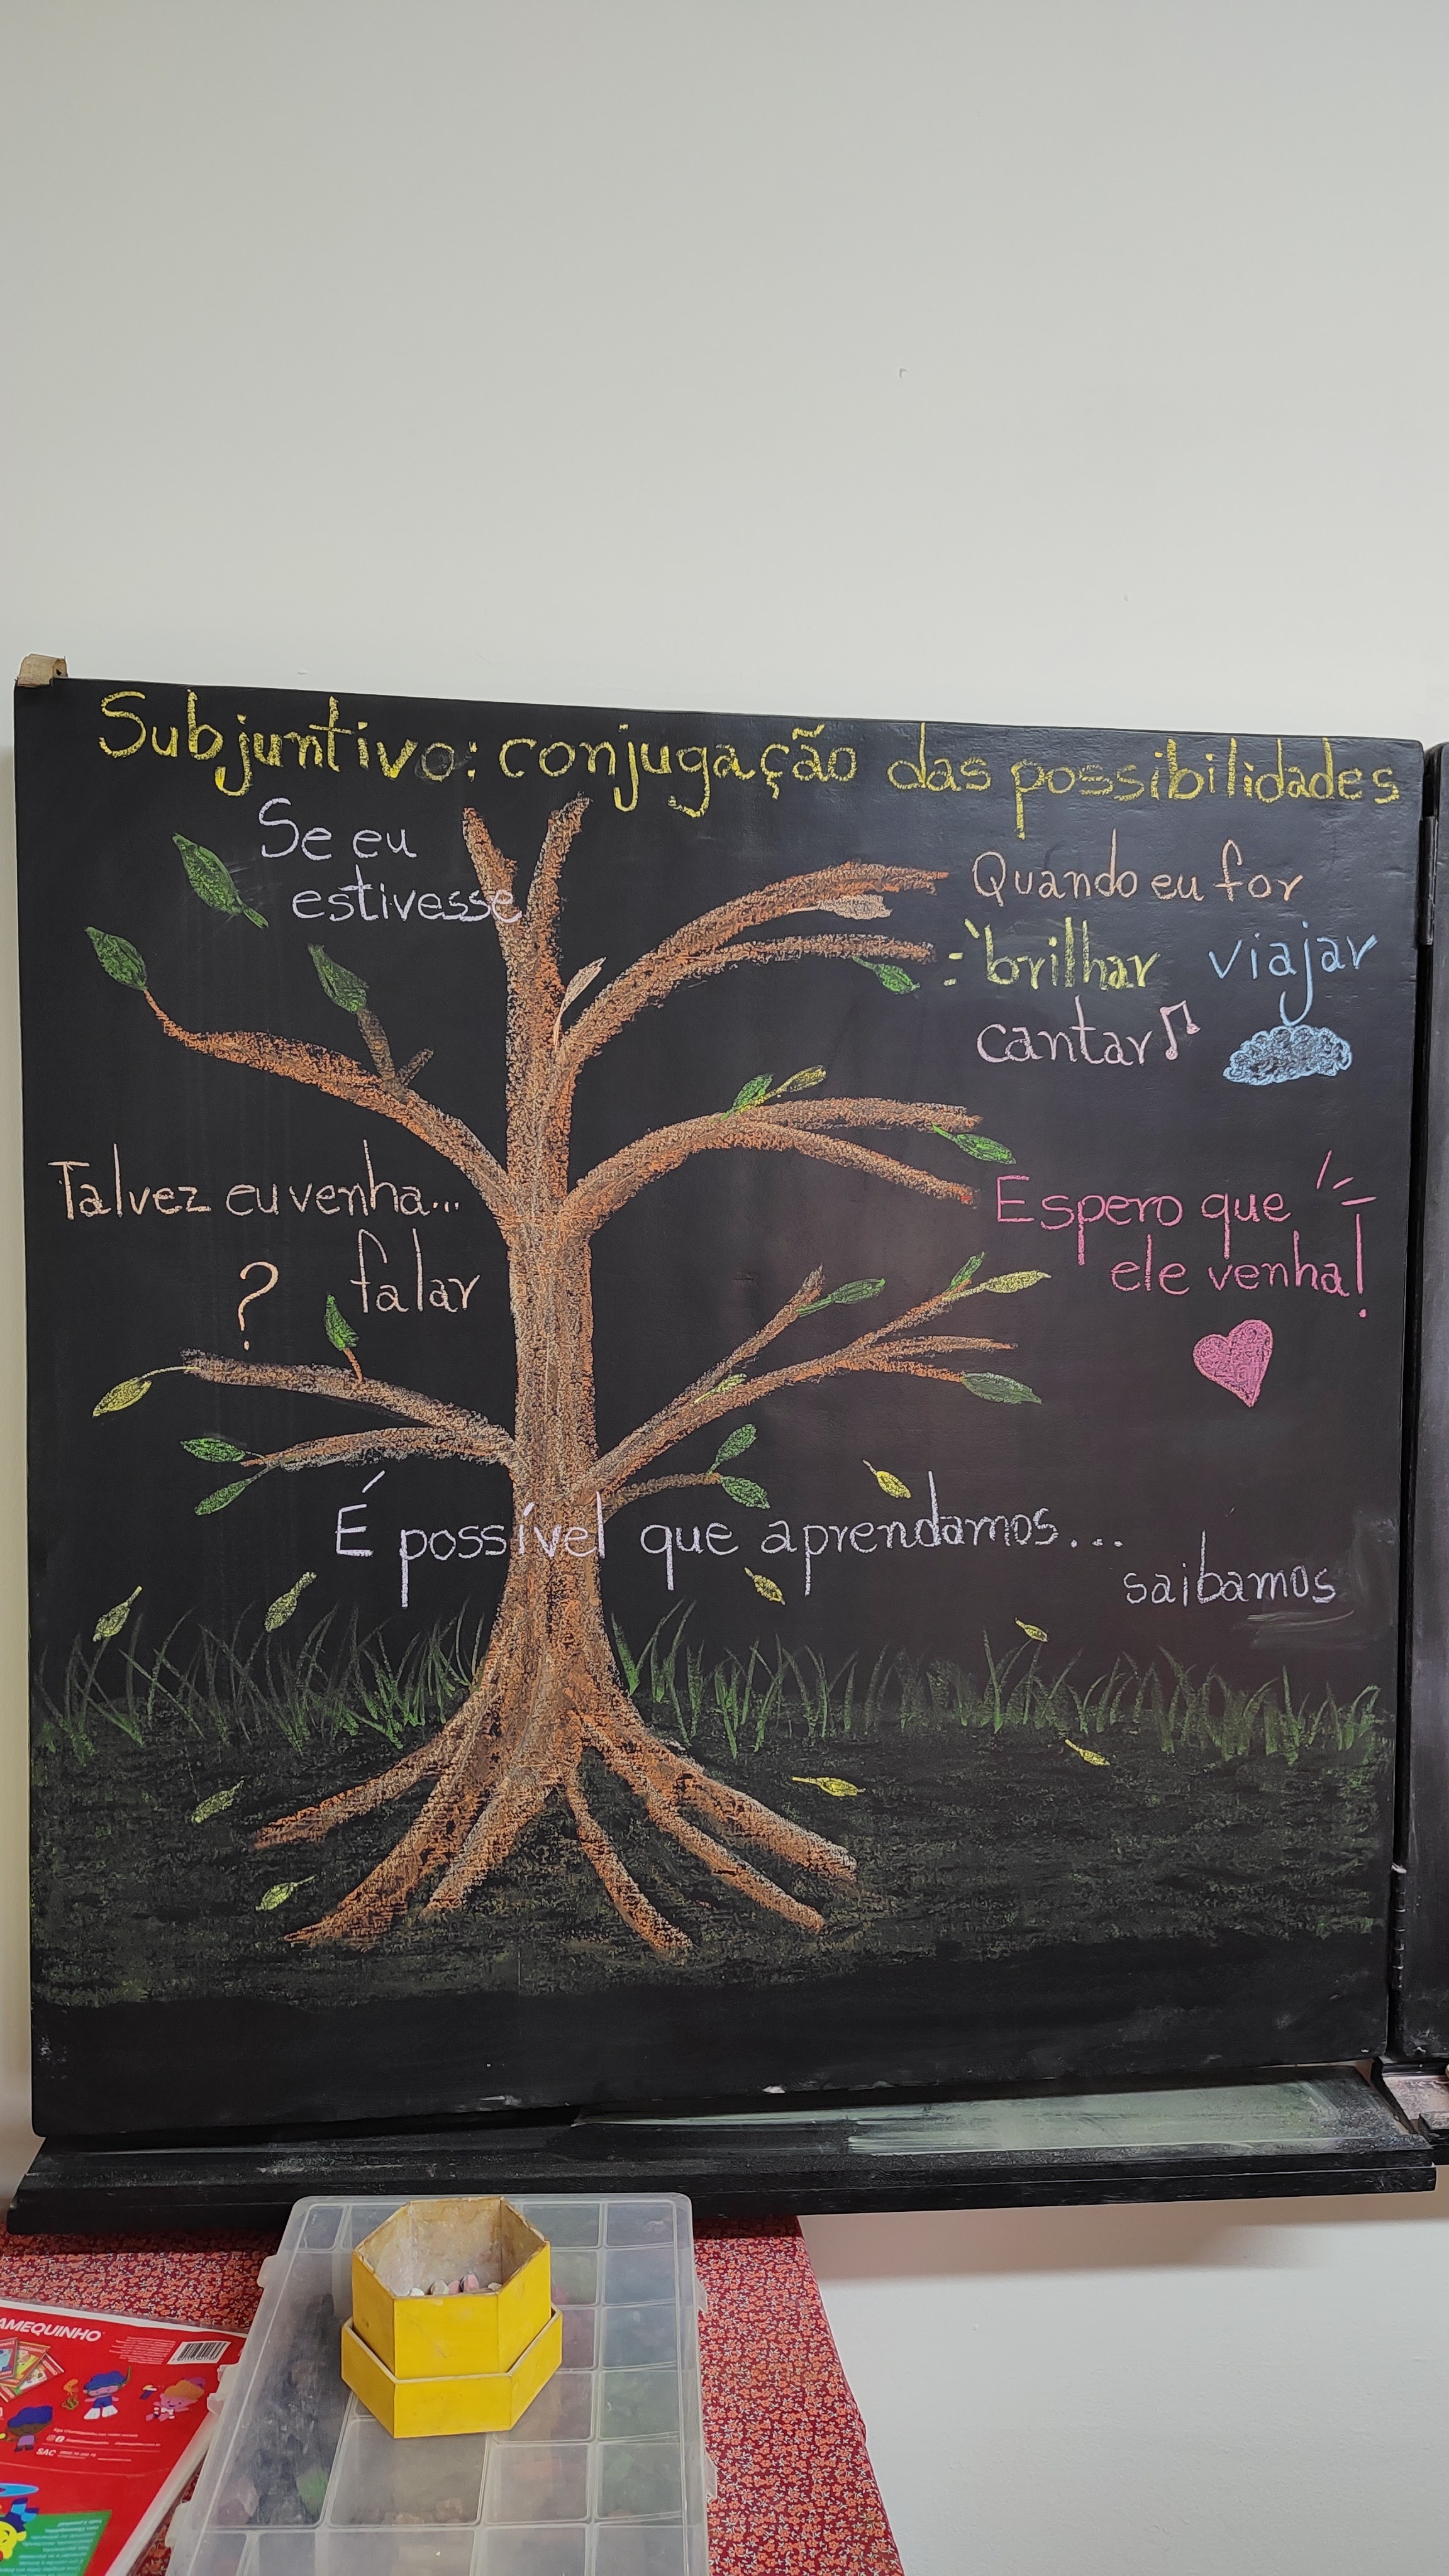 Subjuntivo: conjugação das possibilidades
Se eu
estivesse
Quando eu for
brilhar viajar
cantar
Talvez eu venha...
? falar
Espero que
ele venha!
É possível que aprendamos...
saibamos
AMEQUINHO
SAC